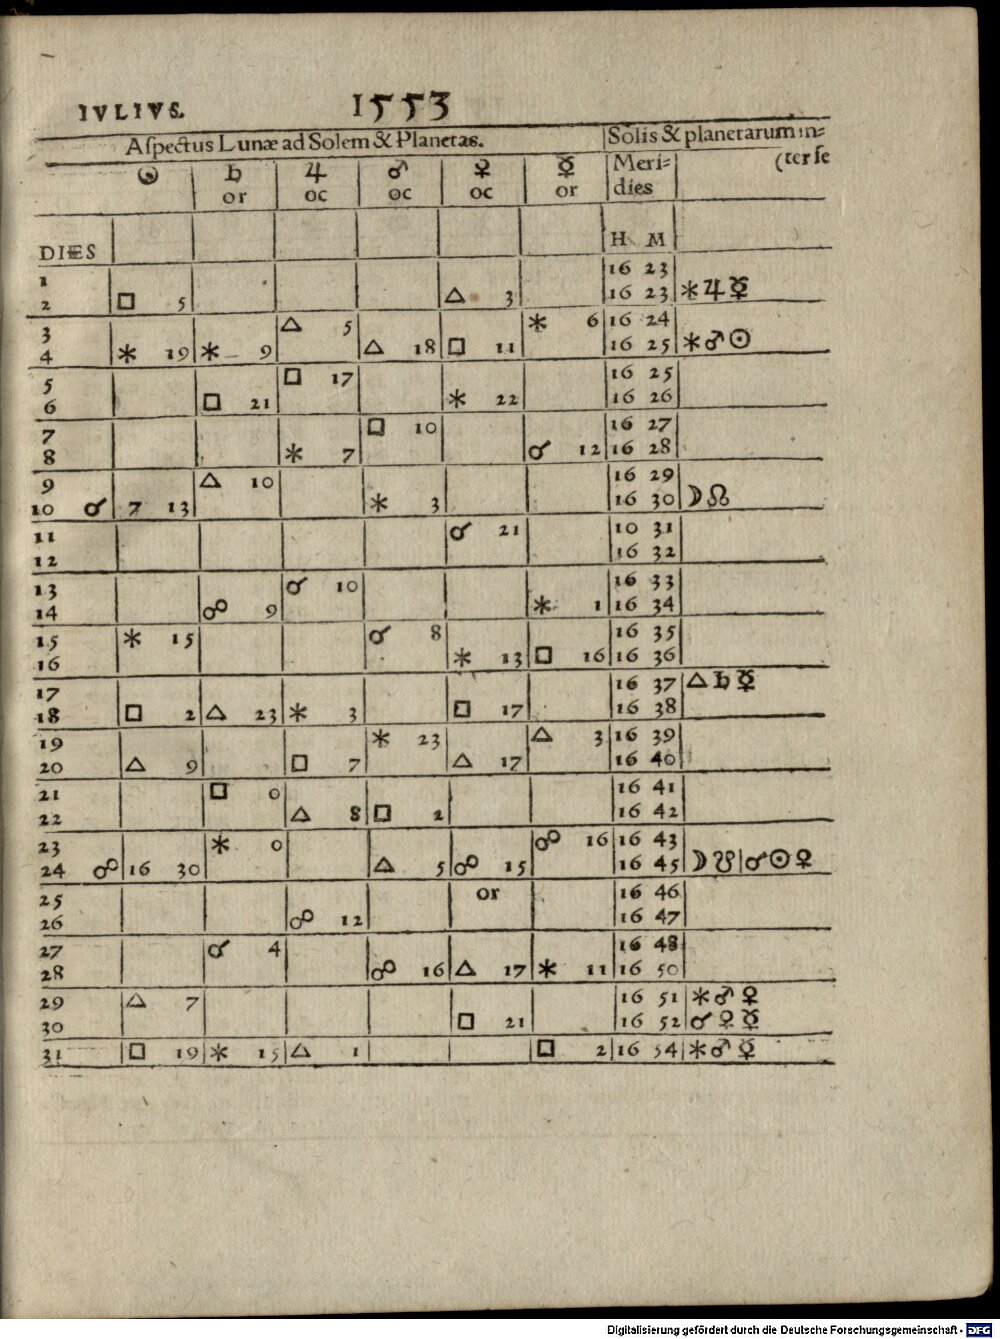 IVLIVS. 1553
Aſpectus Lunæ ad Solem & Planetas. Solis & planetarum in=
☉ ♄ ♃ ♂ ♀ ☿ Meri= (ter ſe
or oc oc oc or dies
DIES H M
1 16 23
2 □ 5 △ 3 16 23 ⚹ ♃ ☿
3 △ 5 ⚹ 6 16 24
4 ⚹ 19 ⚹ 9 △ 18 □ 11 16 25 ⚹ ♂ ☉
5 □ 17 16 25
6 □ 21 ⚹ 22 16 26
7 □ 10 16 27
8 ⚹ 7 ☌ 12 16 28
9 △ 10 16 29
10 ☌ 7 13 ⚹ 3 16 30 ☽ ☊
11 ☌ 21 10 31
12 16 32
13 ☌ 10 16 33
14 ☍ 9 ⚹ 1 16 34
15 ⚹ 15 ☌ 8 16 35
16 ⚹ 13 □ 16 16 36
17 16 37 △ ♄ ☿
18 □ 2 △ 23 ⚹ 3 □ 17 16 38
19 ⚹ 23 △ 3 16 39
20 △ 9 □ 7 △ 17 16 40
21 □ 0 16 41
22 △ 8 □ 2 16 42
23 ⚹ 0 ☍ 16 16 43
24 ☍ 16 30 △ 5 ☍ 15 16 45 ☽ ☋ | ☌ ☉ ♀
25 or 16 46
26 ☍ 12 16 47
27 ☌ 4 16 48
28 ☍ 16 △ 17 ⚹ 11 16 50
29 △ 7 16 51 ⚹ ♂ ♀
30 □ 21 16 52 ☌ ♀ ☿
31 □ 19 ⚹ 15 △ 1 □ 2 16 54 ⚹ ♂ ☿
Digitalisierung gefördert durch die Deutsche Forschungsgemeinschaft - DFG